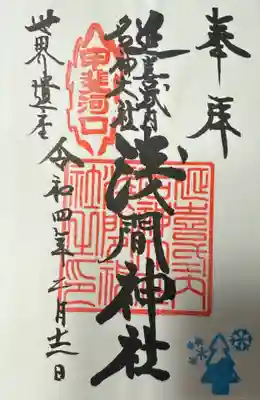 奉拝
延喜式内
名神大社
浅間神社
甲斐河口
世界遺産
令和四年二月十一日